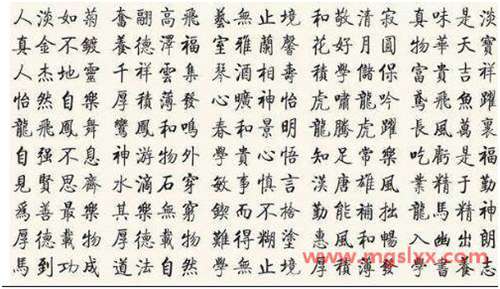 人淡如菊 奮翮高飛 藝無止境 和敬清寂 真味是淡
真金不鍍 養德澤福 室雅蘭馨 花好月圓 物華天寶
人杰地靈 千祥雲集 琴酒相壽 積學儲保 富貴吉祥
怡然自樂 厚積薄發 心曠神怡 虎嘯龍吟 鳶飛魚躍
龍飛鳳舞 鸞鳳和鳴 春和景明 龍騰虎躍 長風萬裏
自强不息 神游物外 學貴心悟 知足常樂 吃虧是福
見賢思齊 水滴石穿 敏事慎言 漢唐雄風 業精于勤
爲善最樂 其樂無窮 鍥而不捨 勤能補拙 龍馬精神
厚德載物 難得糊塗 惠風和暢 入幽出朗
馬到功成 道法自然 學無止境 厚積薄發 書養志
www.mgslyx.com